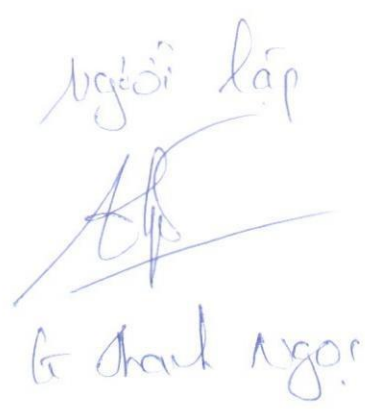 Người lập
G Thanh Ngọc